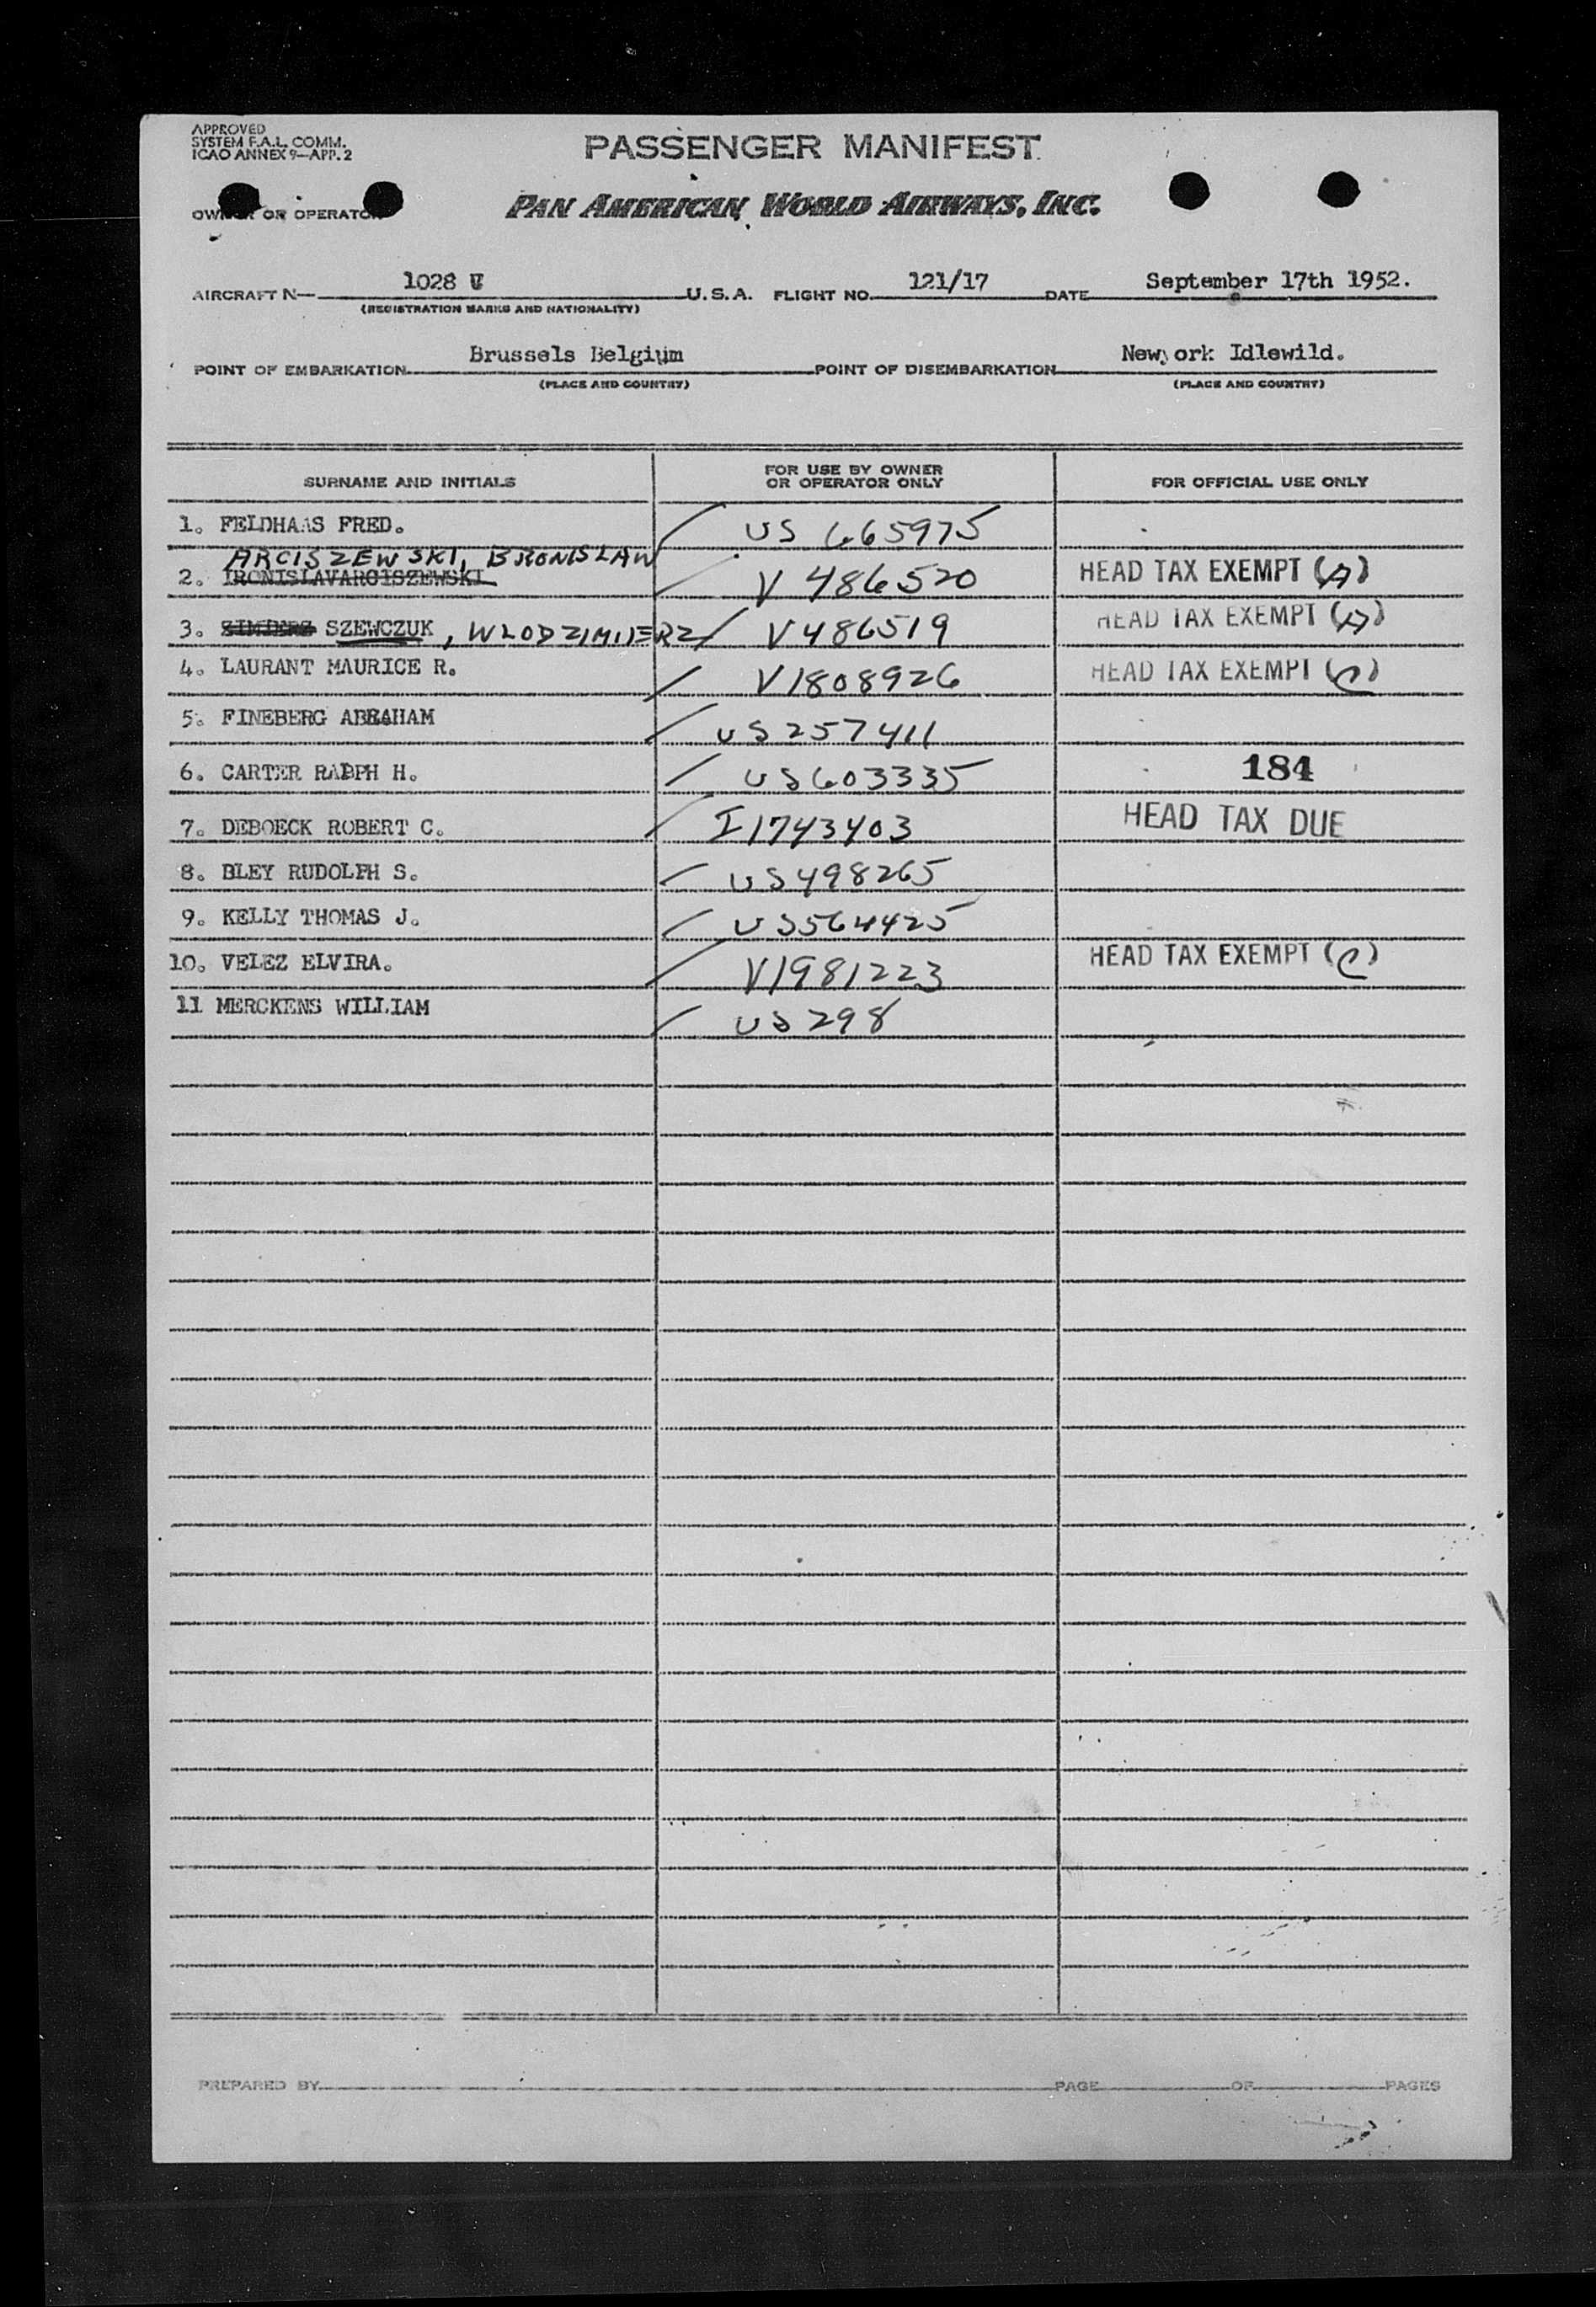 APPROVED
SYSTEM F.A.L. COMM.
ICAO ANNEX 9—APP. 2
PASSENGER MANIFEST
OWNER OR OPERATOR
PAN AMERICAN WORLD AIRWAYS, INC.
AIRCRAFT N— 1028 V U.S.A. FLIGHT NO. 121/17 DATE September 17th 1952.
(REGISTRATION MARKS AND NATIONALITY)
POINT OF EMBARKATION Brussels Belgium POINT OF DISEMBARKATION Newyork Idlewild.
(PLACE AND COUNTRY) (PLACE AND COUNTRY)
SURNAME AND INITIALS FOR USE BY OWNER OR OPERATOR ONLY FOR OFFICIAL USE ONLY
1. FELDHAAS FRED. US 665975
ARCISZEWSKI, BRONISLAW
2. IRONISLAVARCISZEWSKI V 486520 HEAD TAX EXEMPT (A)
3. SZEWCZUK, WLODZIMIERZ V486519 HEAD TAX EXEMPT (A)
4. LAURANT MAURICE R. V1808926 HEAD TAX EXEMPT (C)
5. FINEBERG ABRAHAM US257411
6. CARTER RALPH H. US603335 184
7. DEBOECK ROBERT C. I1743403 HEAD TAX DUE
8. BLEY RUDOLPH S. US498265
9. KELLY THOMAS J. US564425
10. VELEZ ELVIRA. V1981223 HEAD TAX EXEMPT (C)
11 MERCKENS WILLIAM US298
PREPARED BY PAGE OF PAGES